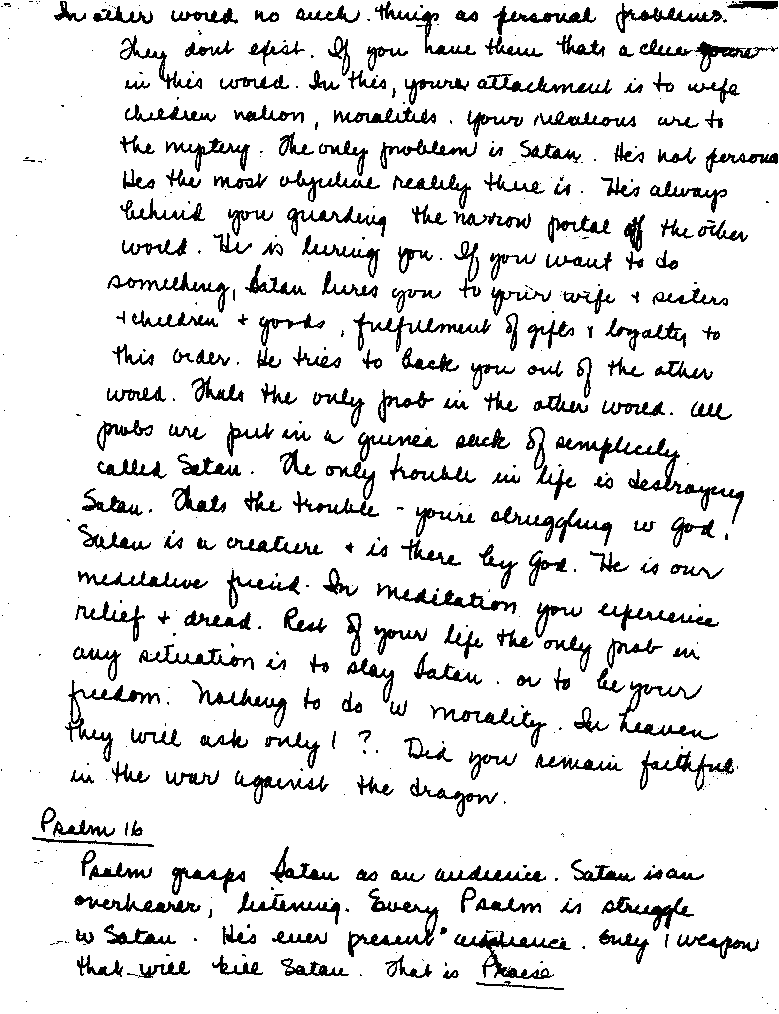 In other world no such things as personal problems.
They dont exist. If you have them thats a clue youre
in this world. In this, youre attachment is to wife
children nation, moralities. your relations are to
the mystery. The only problem is Satan. He's not persona
Hes the most objective reality there is. He's always
behind you guarding the narrow portal of the other
world. He is luring you. If you want to do
something, Satan lures you to your wife + sisters
+ children + goods, fulfulment of gifts & loyalty to
this order. He tries to back you out of the other
world. Thats the only prob in the other world. all
probs are put in a guinea sack of semplicity
called Satan. The only trouble in life is destroying
Satan. Thats the trouble - you're struggling w God!
Satan is a creature + is there by God. He is our
meditative friend. In meditation you experience
relief + dread. Rest of your life the only prob in
any situation is to slay Satan. or to be your
freedom. Nothing to do w morality. In heaven
they will ask only 1 ?. Did you remain faithful
in the war against the dragon.
Psalm 16
Psalm grasps Satan as an audience. Satan is an
overhearer, listening. Every Psalm is struggle
w Satan. He's ever present audience. Only 1 weapon
that will kill Satan. That is Praise